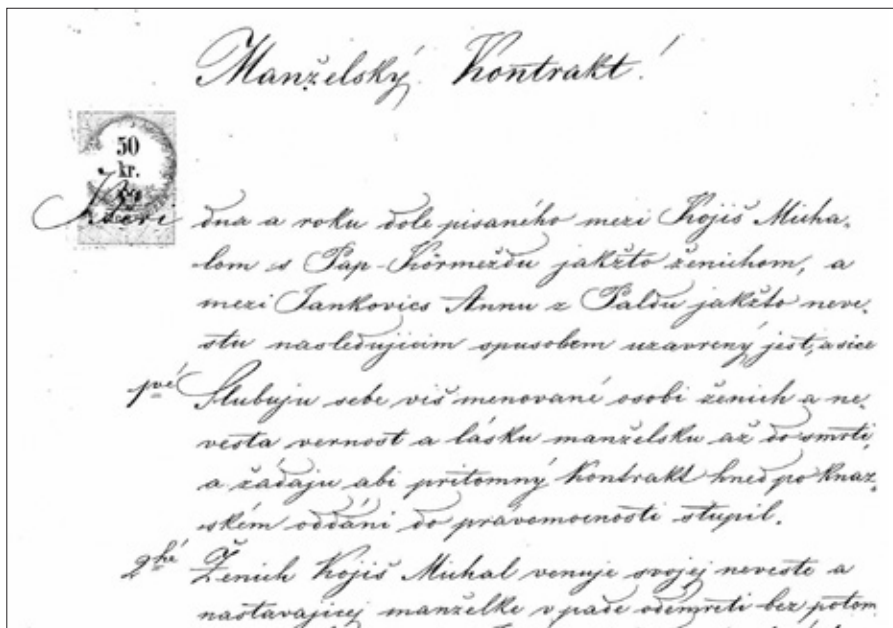 Manželský Kontrakt!
50
kr.
Kteri dna a roku dole pisaného mezi Kojiš Micha-
lom s Pap-Körmeždu jakžto ženichom, a
mezi Jankovics Annu z Paldu jakžto neve-
stu nasledujicim spusobem uzavrený jest, a sice
1vé Slubuju sebe viš menované osobi ženich a ne-
vesta vernost a lásku manželsku až do smrti,
a žádaju abi pritomný Kontrakt hned po knaz-
ském oddáni do právomocnosti stupil.
2hé Ženich Kojiš Michal venuje svojej neveste a
nastavajicej manželke v pade odemreti bez potom